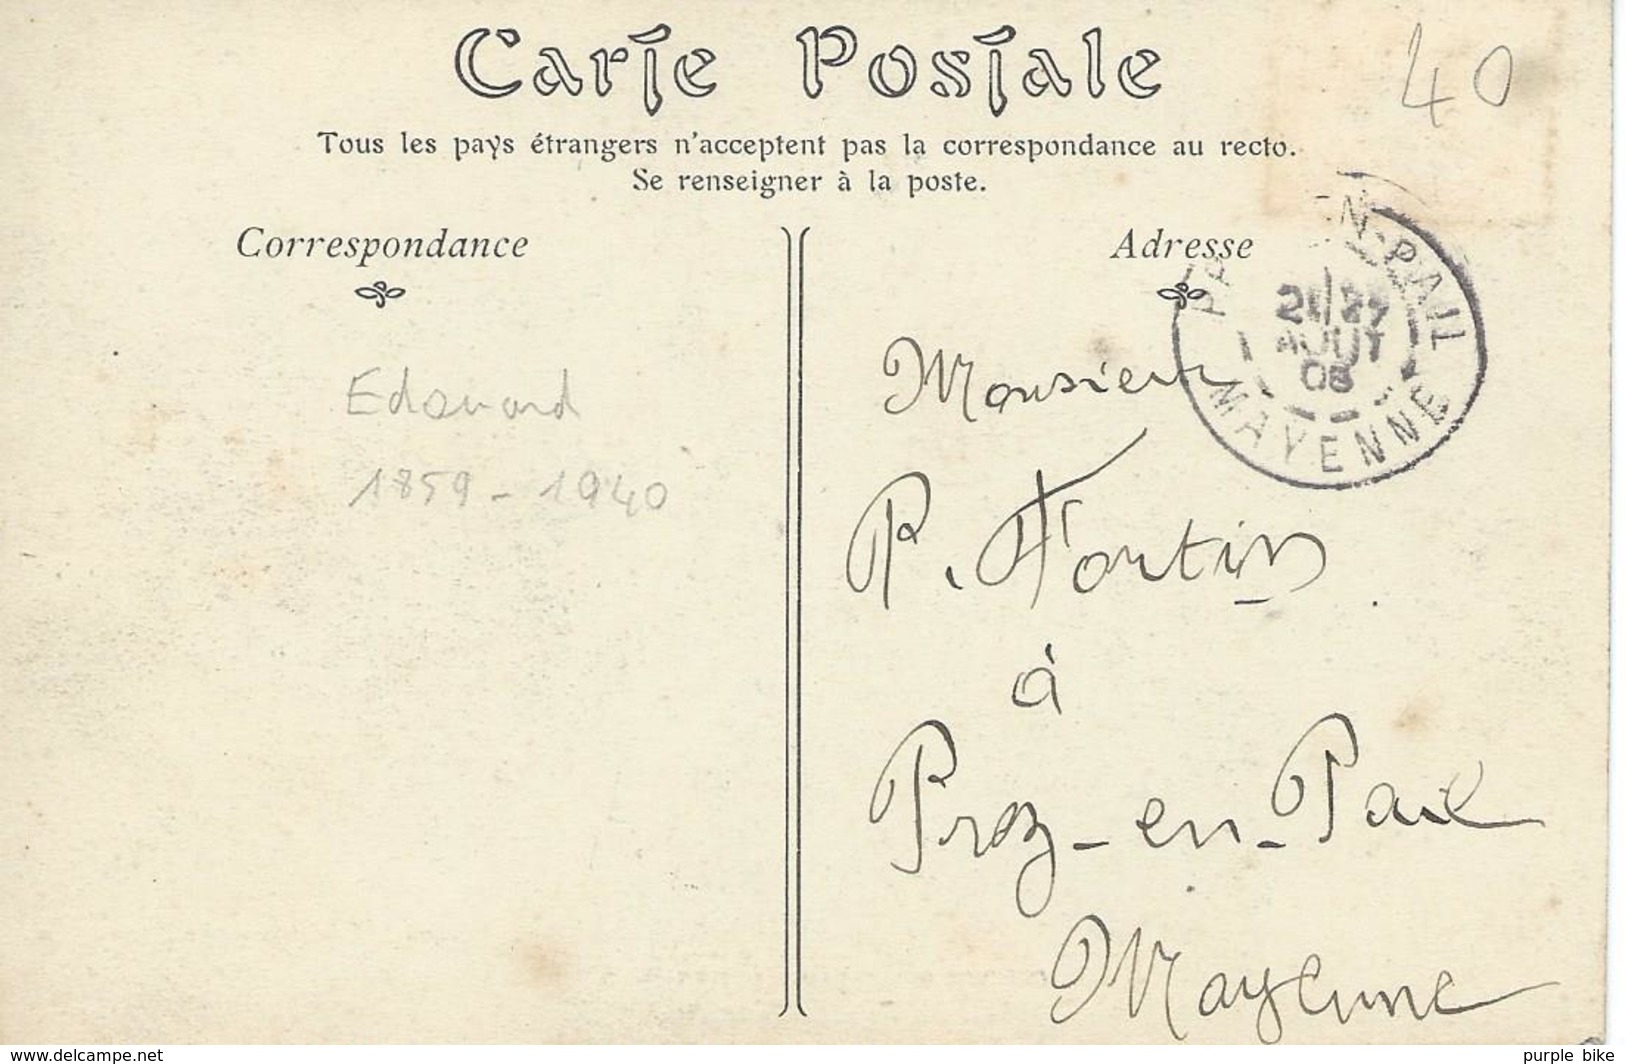 Carte Postale
40
Tous les pays étrangers n'acceptent pas la correspondance au recto.
Se renseigner à la poste.
Correspondance
Adresse
EN-PAIL
AOUT
08
MAYENNE
Edouard
1859-1940
Monsieur
P. Fortin
à
Prez-en-Pail
Mayenne
www.delcampe.net
purple bike